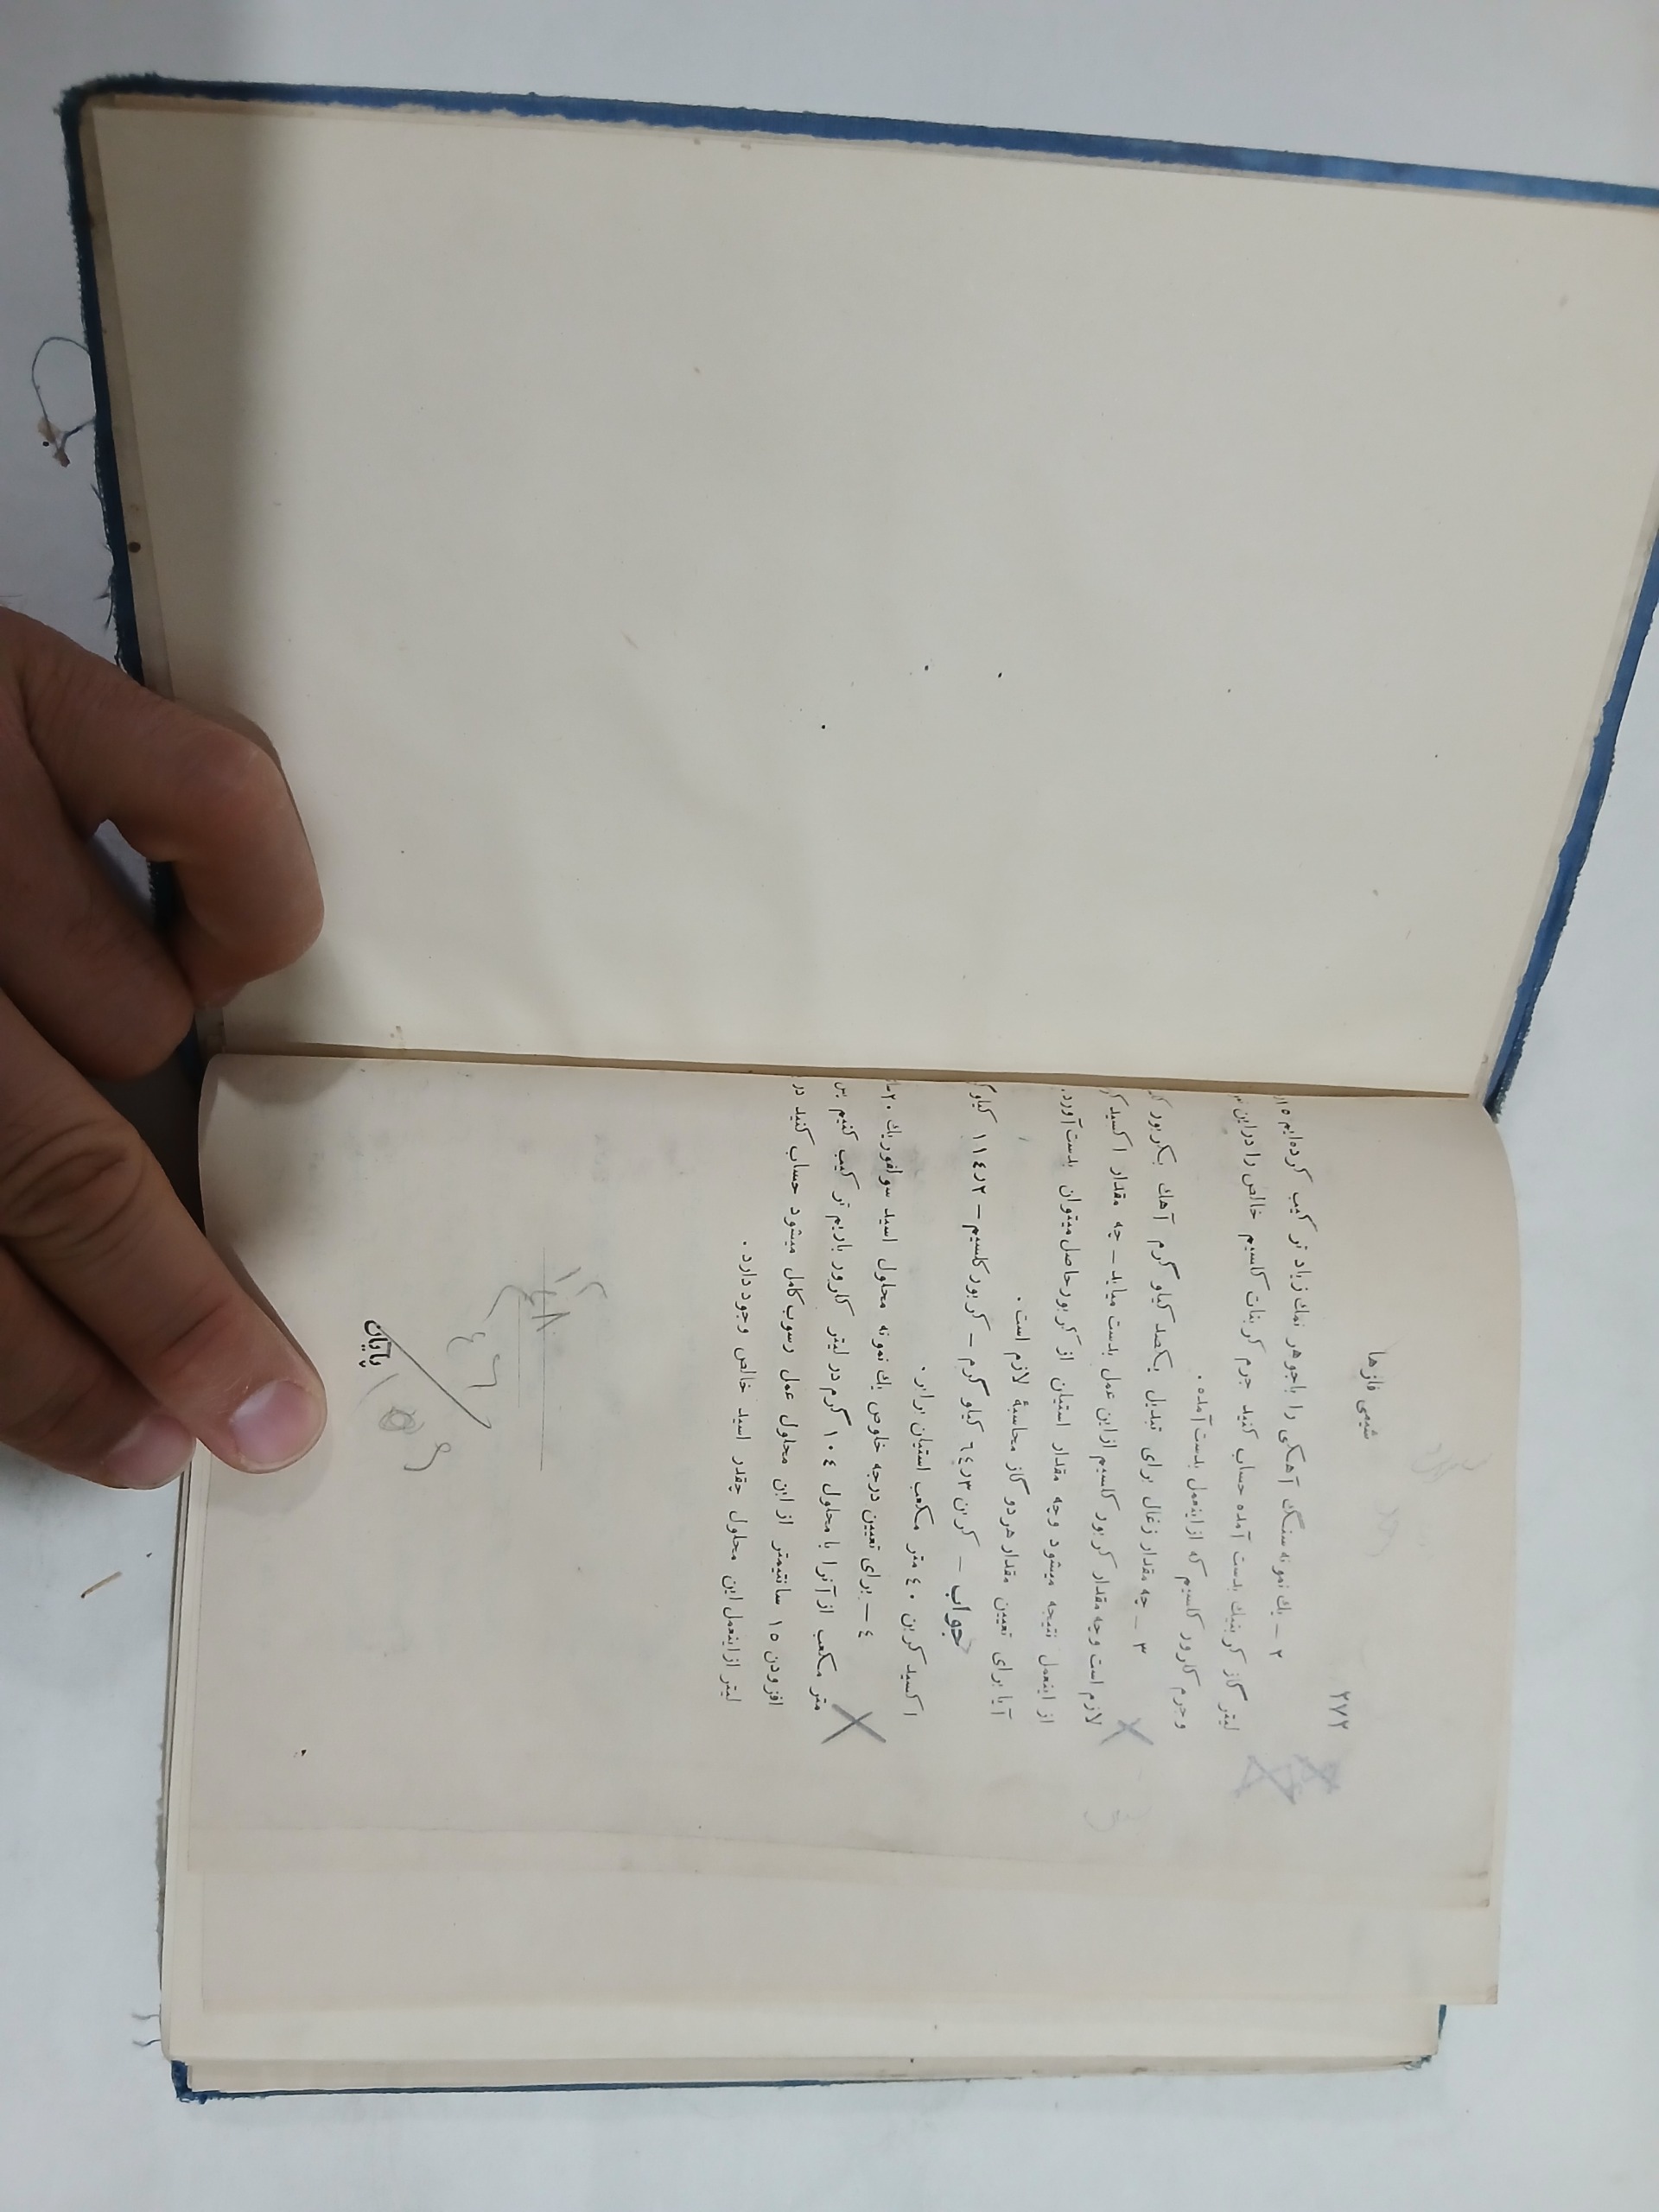 ۲۷۲
شیمی فلزها
۲ – یك نمونه سنگ آهکی را باجوهر نمك زیاد تر کیب کرده‌ایم
لیتر گاز کربنیك بدست آمده حساب کنید جرم کربنات کلسیم خالص را دراین
وجرم کلرور کلسیم که ازاینعمل بدست آمده .
۳ – چه مقدار زغال برای تبدیل یکصد کیلو گرم آهك بکربور
لازم است وچه مقدار کربور کلسیم ازاین عمل بدست میاید – چه مقدار اکسید
از اینعمل نتیجه میشود وچه مقدار استیلن از کربور حاصل میتوان بدست آورد.
آیا برای تعیین مقدار هردو گاز محاسبهٔ لازم است .
جواب – کربن ۶۴٫۳ کیلو گرم – کربور کلسیم – ۱۱۴٫۲
اکسید کربن ۴۰ متر مکعب استیلن برابر .
۴ – برای تعیین درجه خلوص یك نمونه محلول اسید سولفوریك ۲۰
متر مکعب از آنرا با محلول ۱۰۴ گرم در لیتر کلرور باریم تر کیب کنیم پس
افزودن ۱۵ سانتیمتر از این محلول عمل رسوب کامل میشود حساب کنید در
لیتر ازاینعمل این محلول چقدر اسید خالص وجود دارد .
پایان